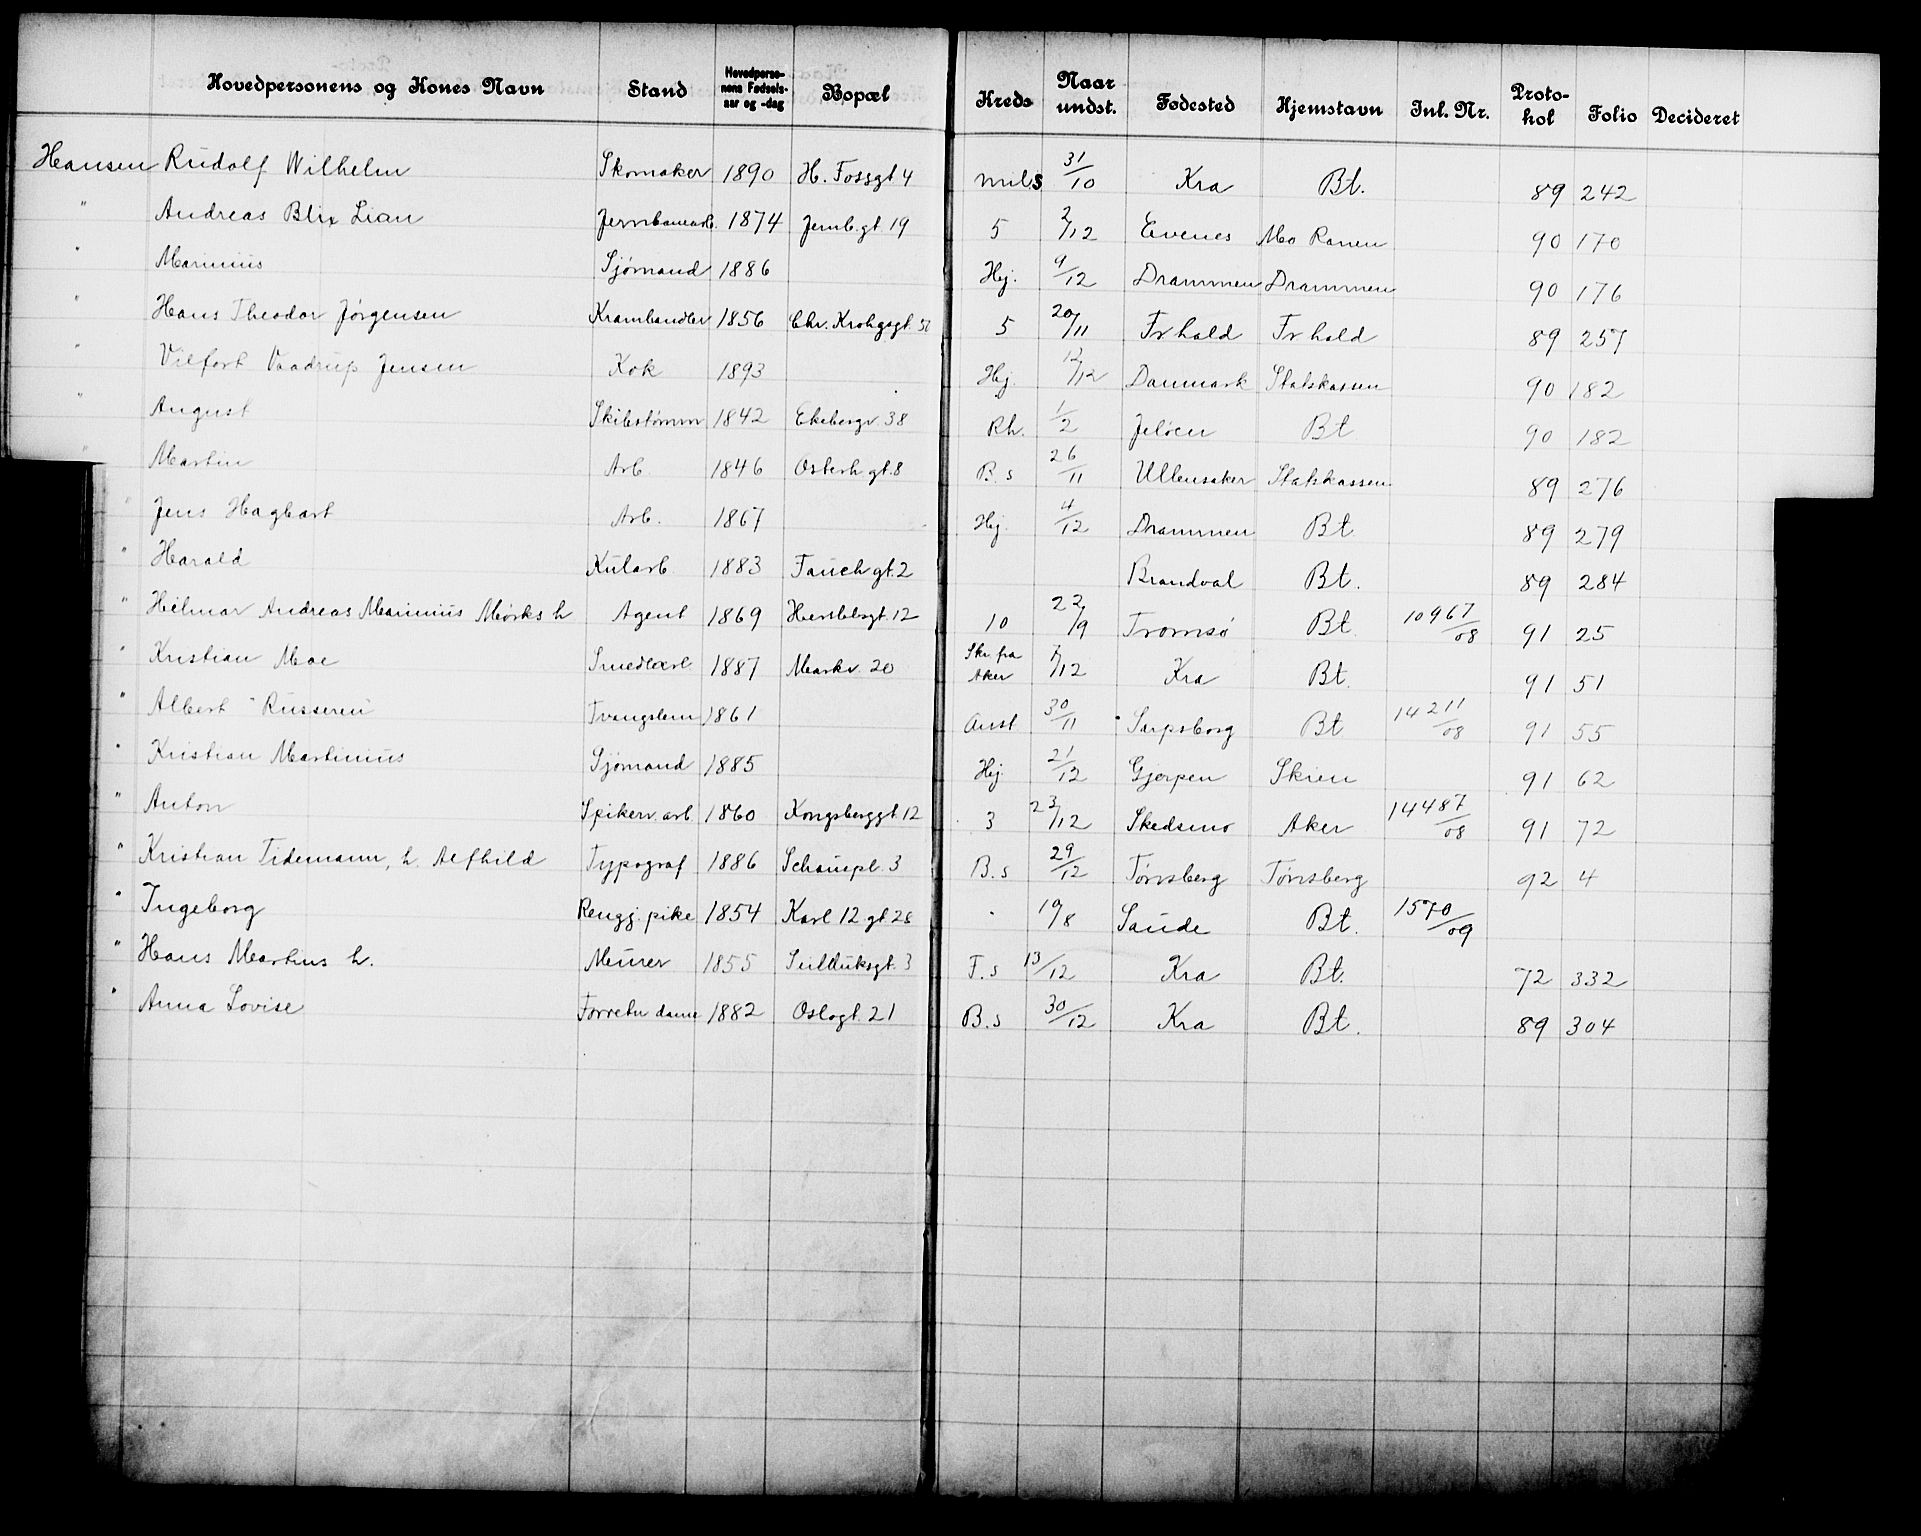 Hovedpersonens og Kones Navn Stand Hovedpersonens Fødselsaar og -dag Bopæl Kreds Naar undst. Fødested Hjemstavn Inl. Nr. Protokol Folio Decideret
Hansen Rudolf Wilhelm Skomaker 1890 H. Fossgt 4 mils 31/10 Kra Bt. 89 242
" Andreas Blix Lian Jernbanearb. 1874 Jernb.gt. 19 5 2/12 Evenes Mo Ranen 90 170
" Marinius Sjømand 1886 Hej. 9/12 Drammen Drammen 90 176
" Hans Theodor Jørgensen Kramhandler 1856 Chr. Krohgsgt. 5 20/11 Fr hald Fr hald 89 257
" Vilfort Vaadrup Jensen Kok 1893 Hej. 12/12 Danmark Statskassen 90 182
" August Skibstømm 1842 Ekebergv. 38 Rh. 1/2 Jeløen Bt 90 182
" Martin Arb. 1846 Osterh.gt. 8 B.s 26/11 Ullensaker Statskassen 89 276
" Jens Hagbart Arb. 1867 Hej. 4/12 Drammen Bt 89 279
" Harald Kularb. 1883 Tauch gt. 2 Brandval Bt. 89 284
" Hilmar Andreas Marinius Mørks h Agent 1869 Herslebsgt. 12 10 22/9 Tromsø Bt. 10967/08 91 25
" Kristian Moe Smedlærl. 1887 Markv. 20 Skr. fra Aker 7/12 Kra Bt. 91 51
" Albert Russeren Tvangslem 1861 Anst. 30/11 Sarpsborg Bt 14211/08 91 55
" Kristian Martinius Sjømand 1885 Hej. 21/12 Gjerpen Skien 91 62
" Anton Spikerv. arb 1860 Kongsberggt. 12 3 23/12 Skedsmo Aker 14487/08 91 72
" Kristian Tidemann, h. Alfhild Typograf 1886 Schouspl. 3 B.s 29/12 Tønsberg Tønsberg 92 4
" Ingeborg Rengj. pike 1854 Karl 12 gt. 28 " 19/8 Saude Bt. 1570/09
" Hans Martius h. Murer 1855 Seilduksgt. 3 F.s 13/12 Kra Bt. 72 332
" Anna Lovise Forretn dame 1882 Oslogt. 21 B.s 30/12 Kra Bt. 89 304